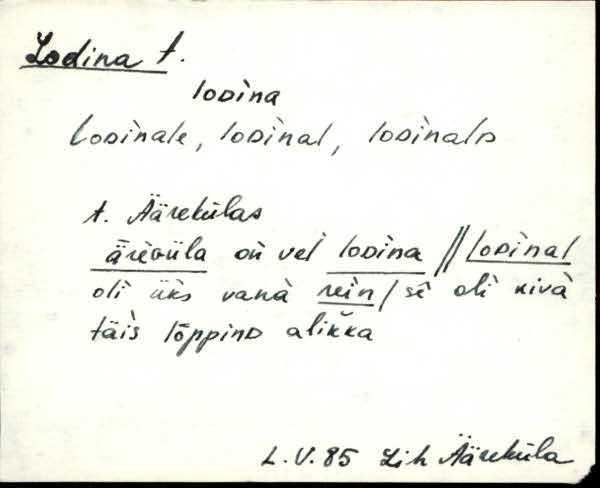 Lodina t.
loᴅìna
Loᴅìnale, loᴅìnal, loᴅìnalᴅ
t. Äärekülas
ärèɢüla on vel loᴅìna // loᴅìnal
oli üks vanà rèin / sè oli kivà
täis lõppinᴅ alikka
L.V.85 Lih Ääreküla